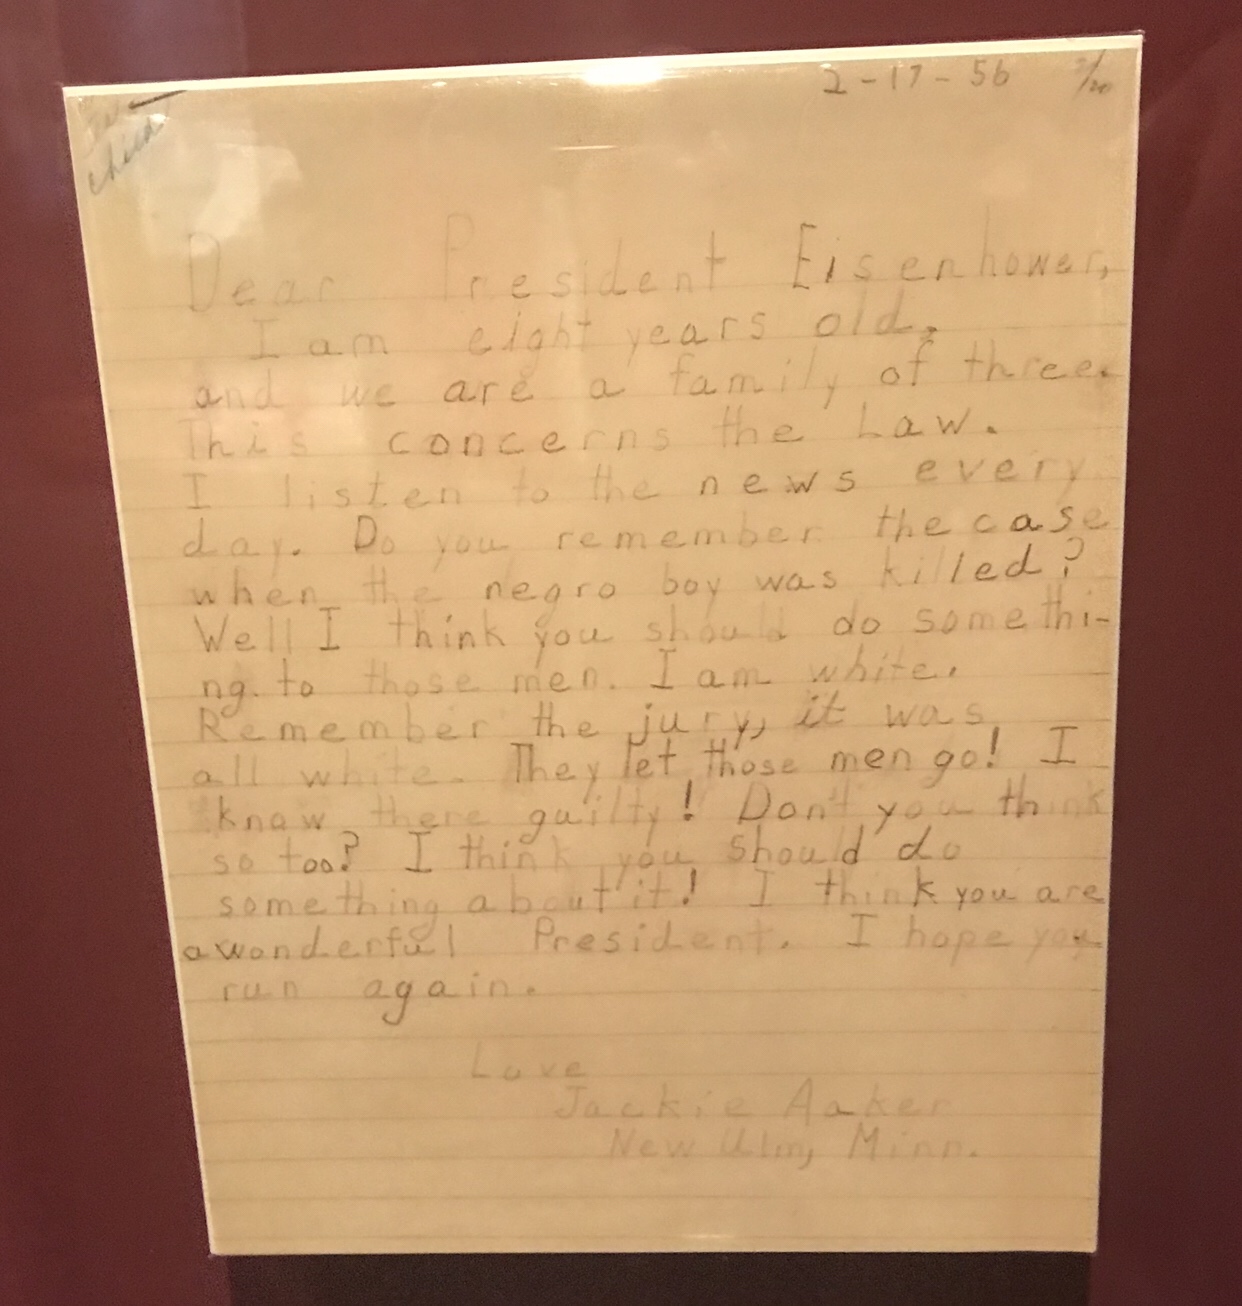 2-17-56 2/20
child
Dear President Eisenhower,
I am eight years old,
and we are a family of three.
This concerns the Law.
I listen to the news every
day. Do you remember the case
when the negro boy was killed?
Well I think you should do somethi-
ng. to those men. I am white.
Remember the jury, it was
all white. They let those men go! I
know there guilty! Don't you think
so too? I think you should do
something about it! I think you are
a wonderful President. I hope you
run again.
Love
Jackie Aaker
New Ulm, Minn.